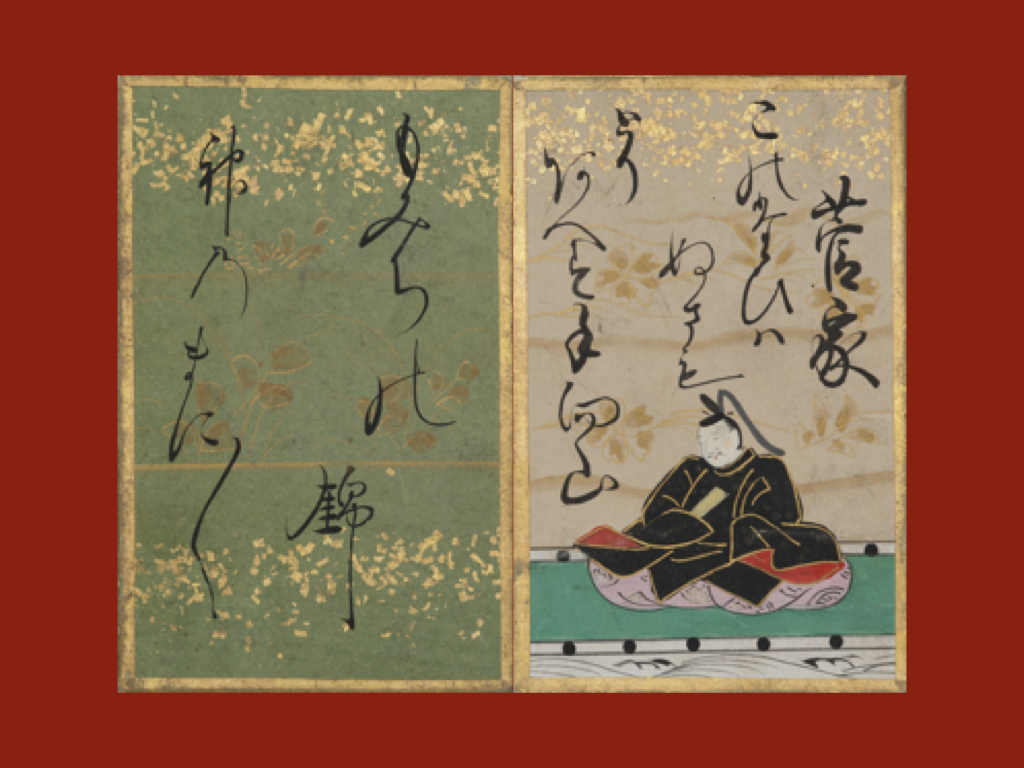 菅家
このたひハ
ぬさも
とり
あへす手向山
もみちの
錦
神のまに〳〵